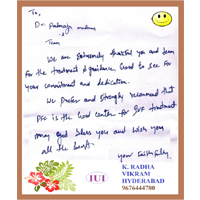 To,
Dr. Padmaja madam
Team
We are extremely thankful you and team
For the treatment & guidance. Good to see for
your commitment and dedication.
We prefer and strongly recommend that
PFC is the best center for IVF treatment
may god bless you and wish you
all the best.
your faithfully,
K. RADHA
VIKRAM
HYDERABAD
9676444780
IUI